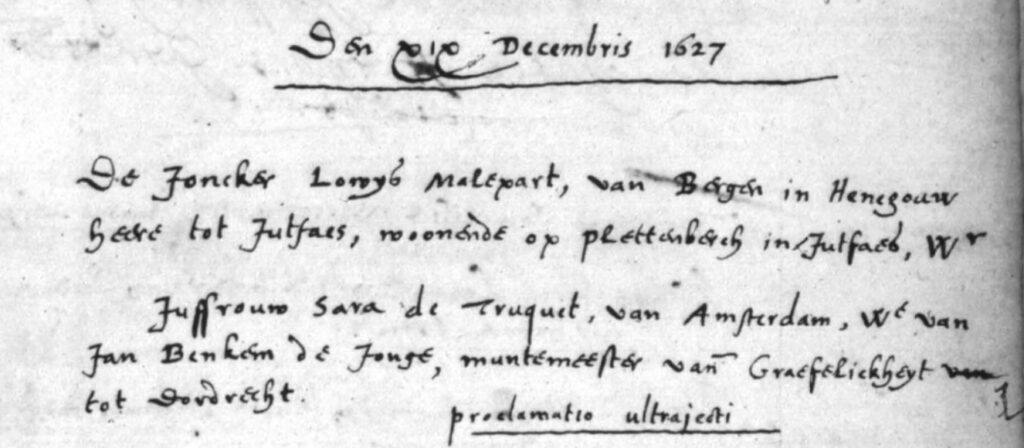 Den xix Decembris 1627
De Joncker Lowys Malepart, van Bergen in Henegouw
heere tot Jutfaes, woonende op plettenberch in Jutfaes, Wr
Juffrouw Sara de Truquet, van Amsterdam, We van
Jan Benkem de Jonge, muntemeester van Graefelickheyt
tot dordrecht.
proclamatio ultrajecti